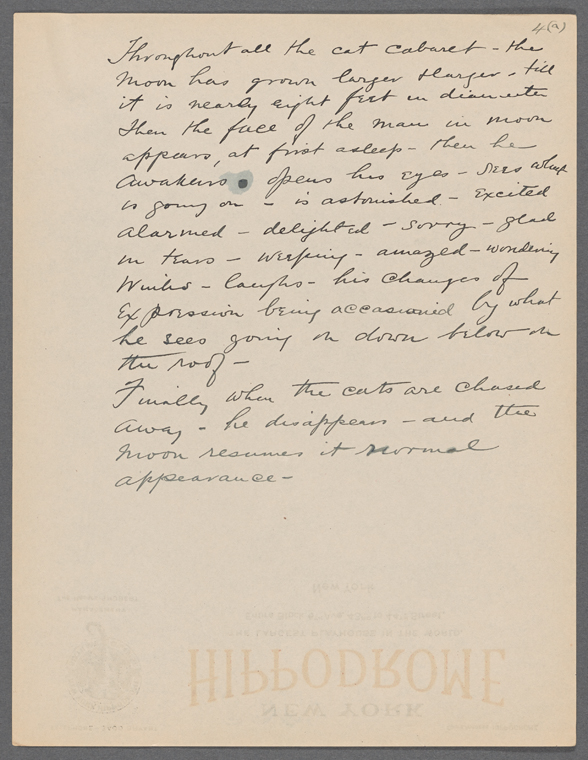 4(a)
Throughout all the cat cabaret - the
moon has grown larger & larger - till
it is nearly eight feet in diameter
Then the face of the man in moon
appears, at first asleep - then he
awakens opens his eyes - sees what
is going on - is astonished - excited
alarmed - delighted - sorry - glad
in tears - weeping - amazed - wondering
Winks - laughs - his changes of
Expression being occasioned by what
he sees going on down below on
the roof -
Finally when the cats are chased
away - he disappears - and the
Moon resumes it normal
appearance -
New York
THE LARGEST PLAYHOUSE IN THE WORLD
HIPPODROME
NEW YORK